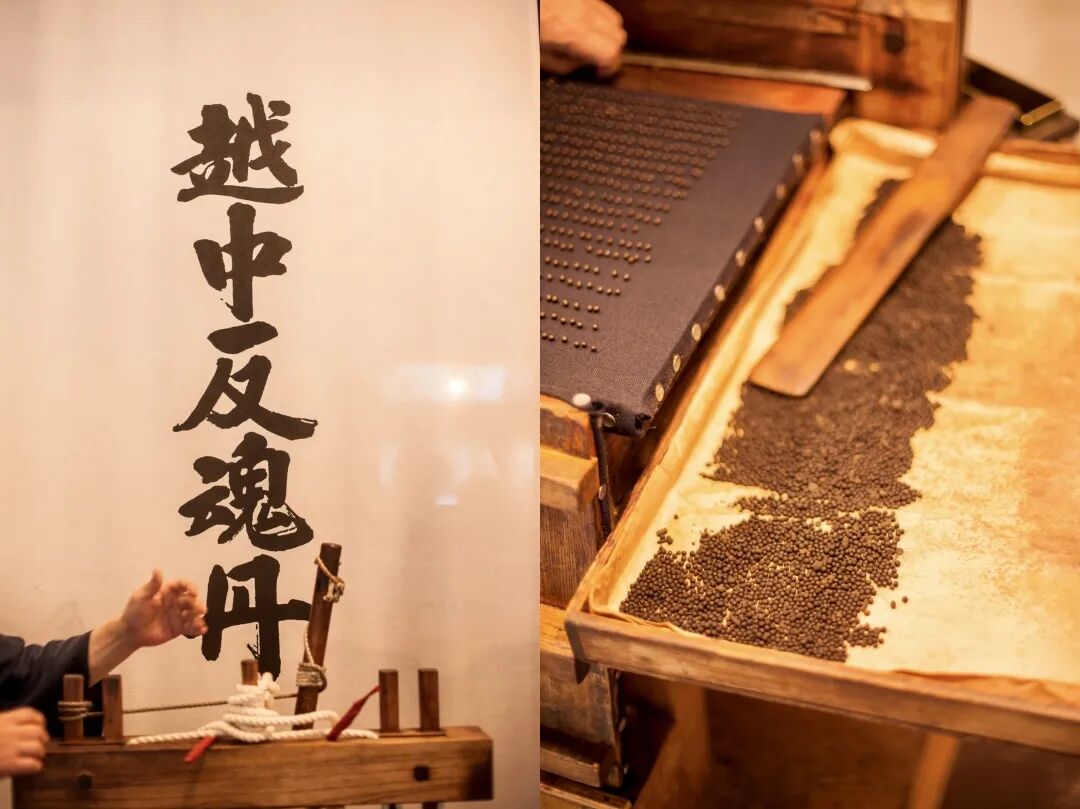 越中反魂丹